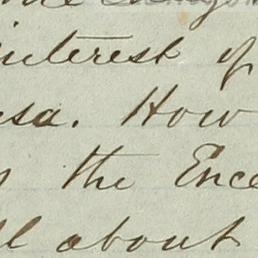 interest of
usa. How
the Ence
ll about